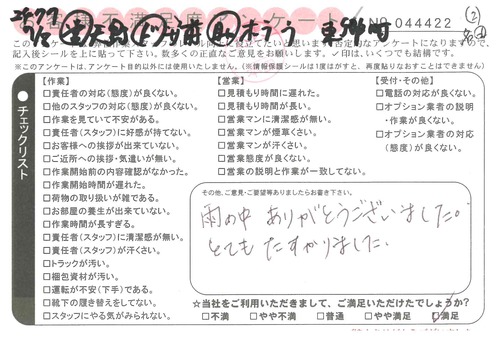 不満足度アンケート NO 044422
記入後シールを上に貼って下さい。数多くの正直なご意見をお願いします。
※このアンケートは、アンケート目的以外には使用いたしません。(※情報保護シールは1度はがすと、再度貼りなおすことはできません)
チェックリスト
【作業】
□責任者の対応(態度)が良くない。
□他のスタッフの対応(態度)が良くない。
□作業を見ていて不安がある。
□責任者(スタッフ)に好感が持てない。
□お客様への挨拶が出来ていない。
□ご近所への挨拶・気遣いが無い。
□作業開始前の内容確認がなかった。
□作業開始時間が遅れた。
□荷物の取り扱いが雑である。
□お部屋の養生が出来ていない。
□作業時間が長すぎる。
□責任者(スタッフ)に清潔感が無い。
□責任者(スタッフ)が汗くさい。
□トラックが汚い。
□梱包資材が汚い。
□運転が不安(下手)である。
□靴下の履き替えをしてない。
□スタッフにやる気がみられない。
【営業】
□見積もり時間に遅れた。
□見積もり時間が長い。
□営業マンに清潔感が無い。
□営業マンが煙草くさい。
□営業マンが汗くさい。
□営業態度が良くない。
□営業の説明と作業が一致してない。
【受付・その他】
□電話の対応が良くない。
□オプション業者の説明
・作業が良くない。
□オプション業者の対応
(態度)が良くない。
その他、ご意見・ご要望等ありましたらお書き下さい。
雨の中 ありがとうございました。
とても たすかりました。
☆当社をご利用いただきまして、ご満足いただけたでしょうか?
□不満 □やや不満 □普通 □やや満足 □満足